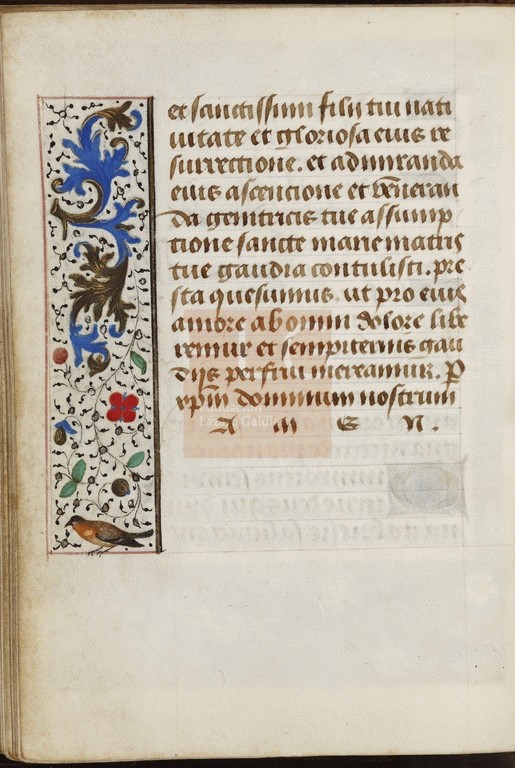 et sanctissimi filij tui nati
uitate et gloriosa eius re
surrectione. et admiranda
eius ascencione et veneran
da genitricis tue assump
tione sancte marie matris
tue gaudia contulisti. pre
sta quesumus. ut pro eius
amore ab omni dolore libe
remur et sempiternis gau
dijs perfrui mereamur. P
xpm dominum nostrum
A m E N.
Fundación
Lázaro Galdiano